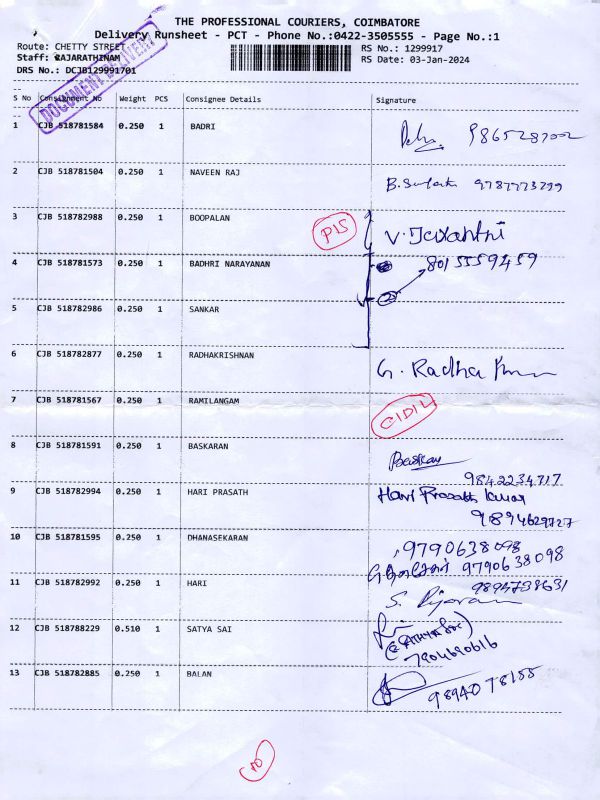 THE PROFESSIONAL COURIERS, COIMBATORE
Delivery Runsheet - PCT - Phone No.:0422-3505555 - Page No.:1
Route: CHETTY STREET
RS No.: 1299917
Staff: RAJARATHINAM
RS Date: 03-Jan-2024
DRS No.: DCJB129991701
DOCUMENT DELIVERY
S No Consignment No Weight PCS Consignee Details Signature
1 CJB 518781584 0.250 1 BADRI
2 CJB 518781504 0.250 1 NAVEEN RAJ 9787773299
3 CJB 518782988 0.250 1 BOOPALAN V. Jayanthi
4 CJB 518781573 0.250 1 BADHRI NARAYANAN 8015559459
5 CJB 518782986 0.250 1 SANKAR
6 CJB 518782877 0.250 1 RADHAKRISHNAN G. Radha
7 CJB 518781567 0.250 1 RAMILANGAM
8 CJB 518781591 0.250 1 BASKARAN Baskaran
9842234717
9 CJB 518782994 0.250 1 HARI PRASATH Hari Prasath Kumar
9894629727
10 CJB 518781595 0.250 1 DHANASEKARAN 9790638098
9790638098
11 CJB 518782992 0.250 1 HARI
12 CJB 518788229 0.510 1 SATYA SAI
7904690616
13 CJB 518782885 0.250 1 BALAN 9894078155